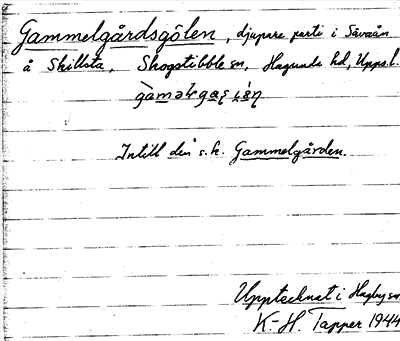 Gammelgårdsgölen, djupare parti i Sävaån
å Skillsta, Skogstibble sn, Hagunda hd, Upps. l.
Intill den s.k. Gammelgården.
Upptecknat i Hagby sn
K-H. Tapper 1944